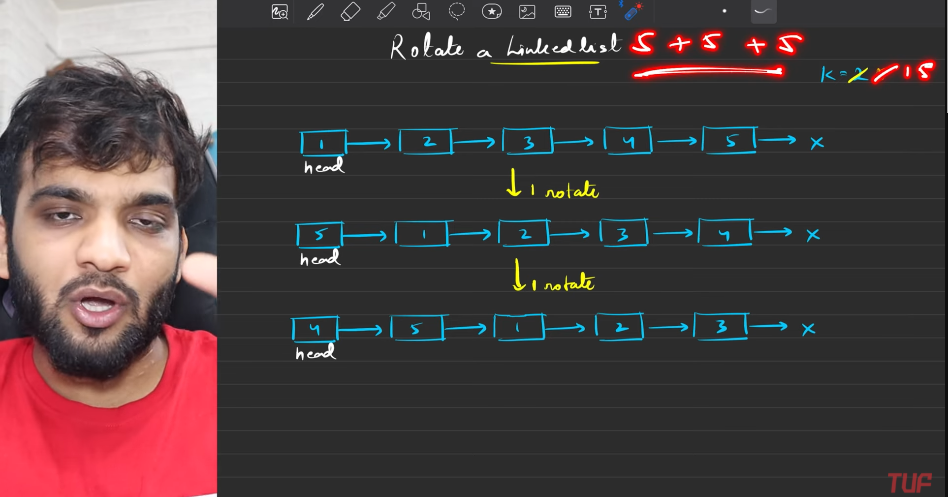 Rotate a Linkedlist 5 + 5 + 5
k = 2 15
1 2 3 4 5 x
head
1 rotate
5 1 2 3 4 x
head
1 rotate
4 5 1 2 3 x
head
TUF